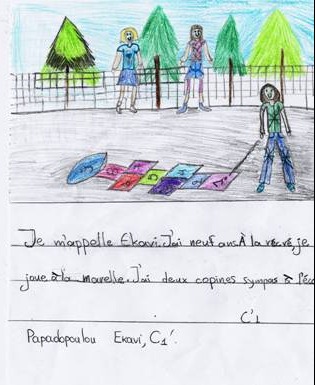 Je m'appelle Ekavi. J'ai neuf ans. À la récré, je
joue à la marelle. J'ai deux copines sympas à l'éco
C'1
Papadopoulou Ekavi, C1'.